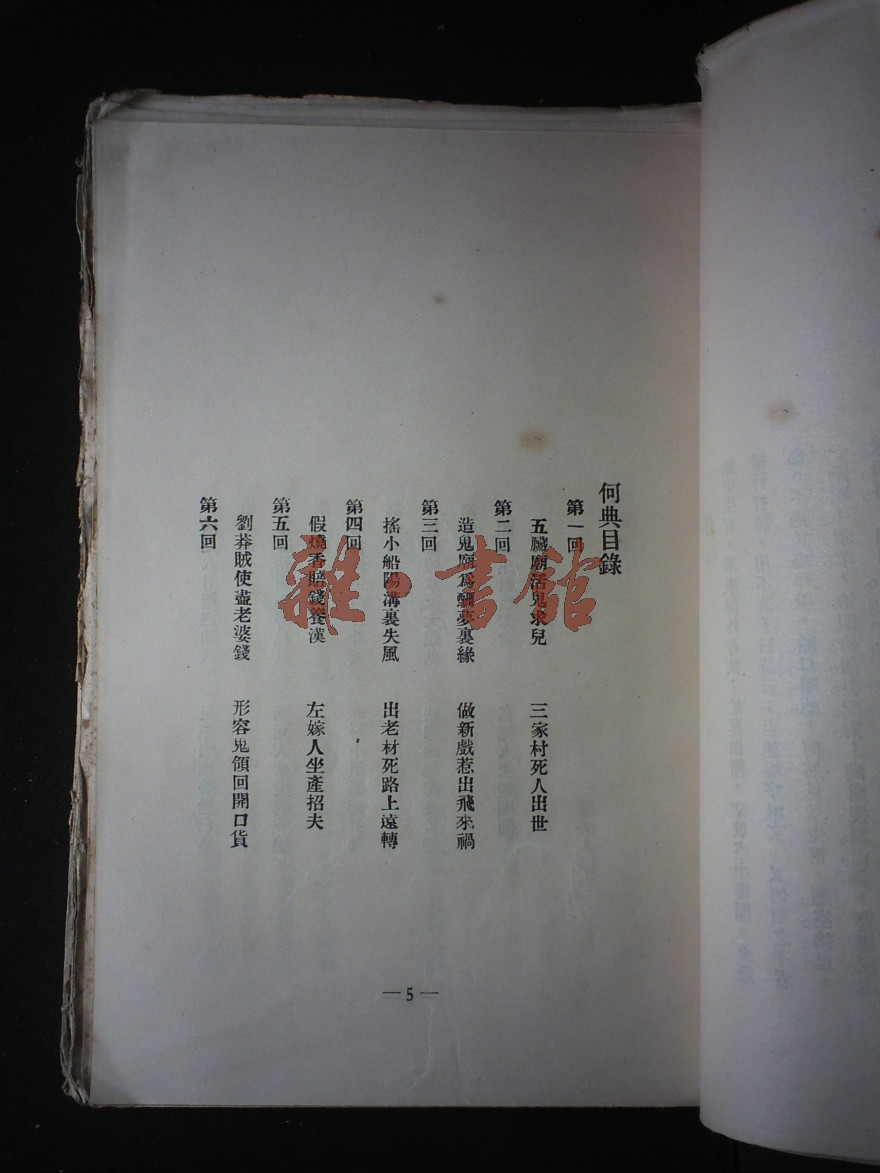 何典目錄
第一回
五臟廟活鬼求兒　三家村死人出世
第二回
造鬼廟爲酬夢裏緣　做新戲惹出飛來禍
第三回
搖小船陽溝裏失風　出老材死路上遠轉
第四回
假燒香賠錢養漢　左嫁人坐產招夫
第五回
劉莽賊使盡老婆錢　形容鬼領回開口貨
第六回
—5—
雜·書館